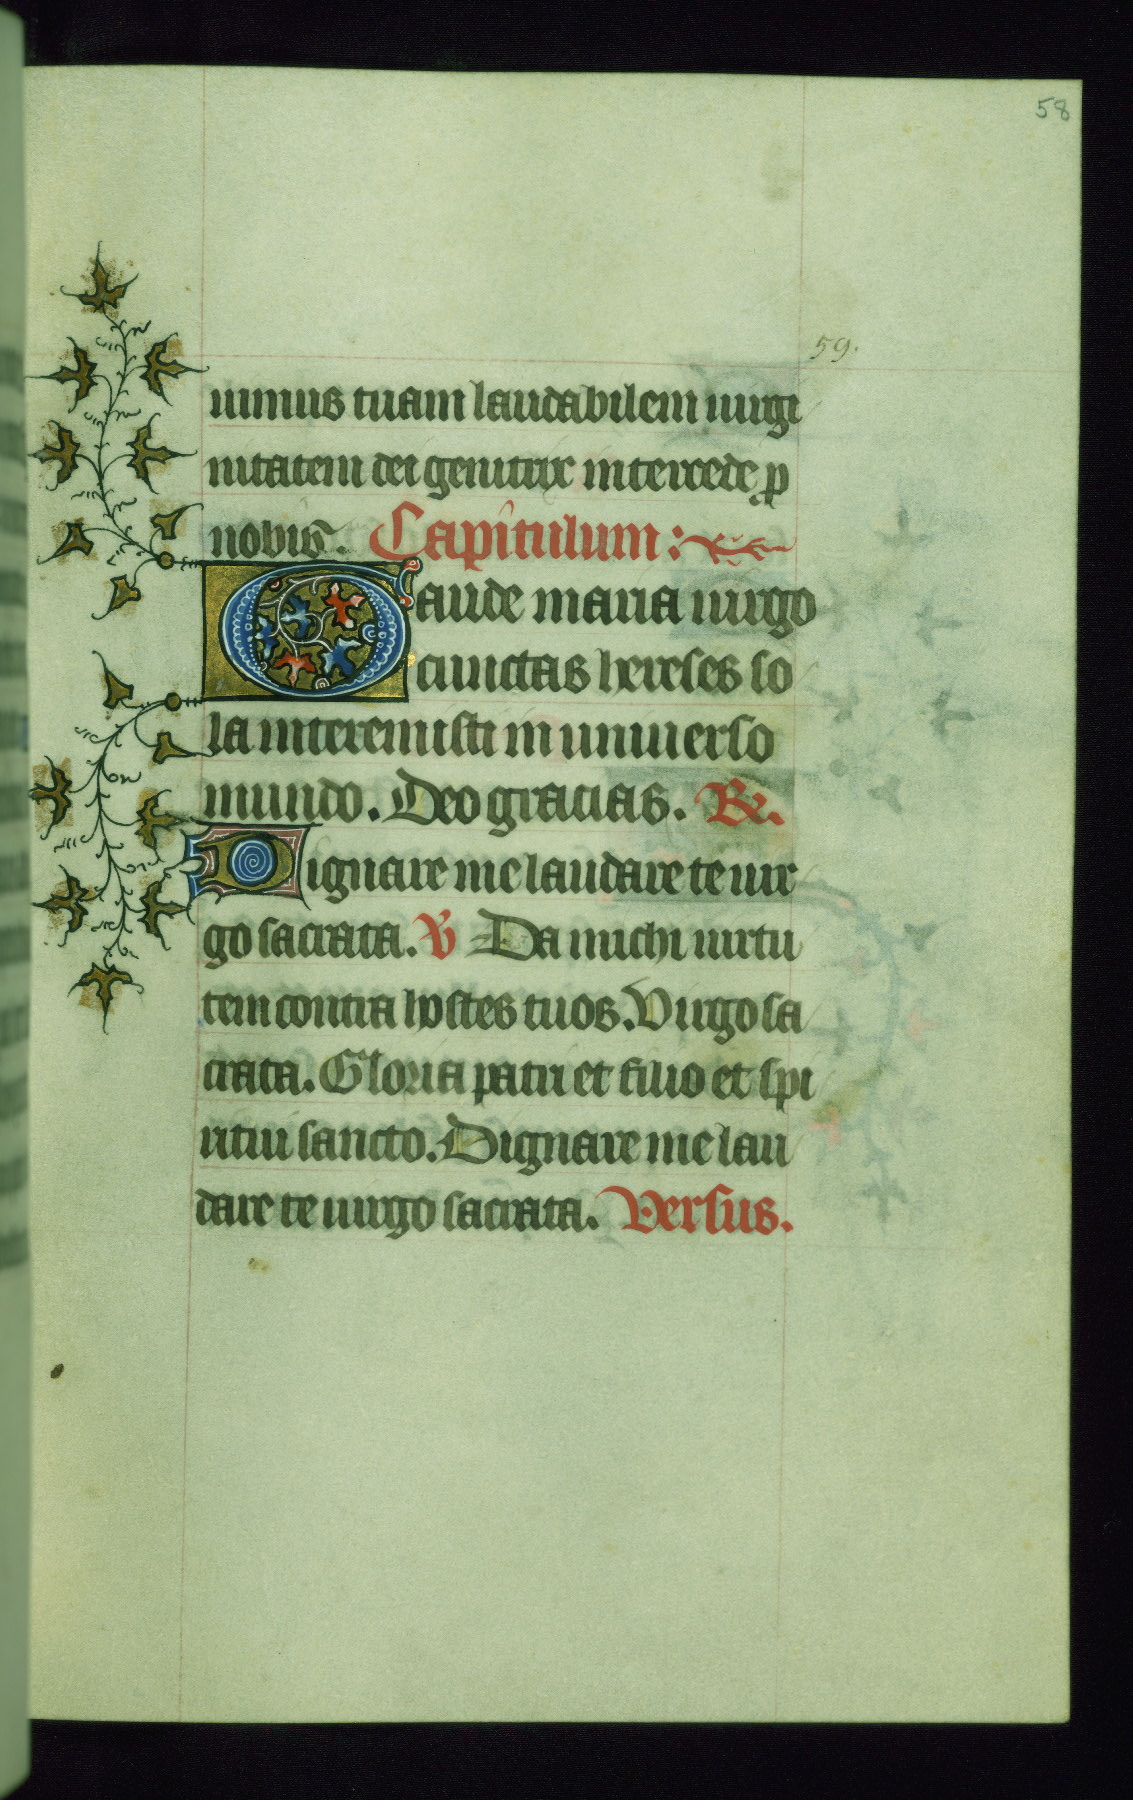 58
59.
uimus tuam laudabilem uirgi
nitatem dei genitrix intercede p
nobis. Capitulum:
Gaude maria uirgo
cunctas hereses so
la interemisti in uniuerso
mundo. Deo gracias. R.
Dignare me laudare te uir
go sacrata. V Da michi uirtu
tem contra hostes tuos. Virgo sa
crata. Gloria patri et filio et spi
ritui sancto. Dignare me lau
dare te uirgo sacrata. Versus.